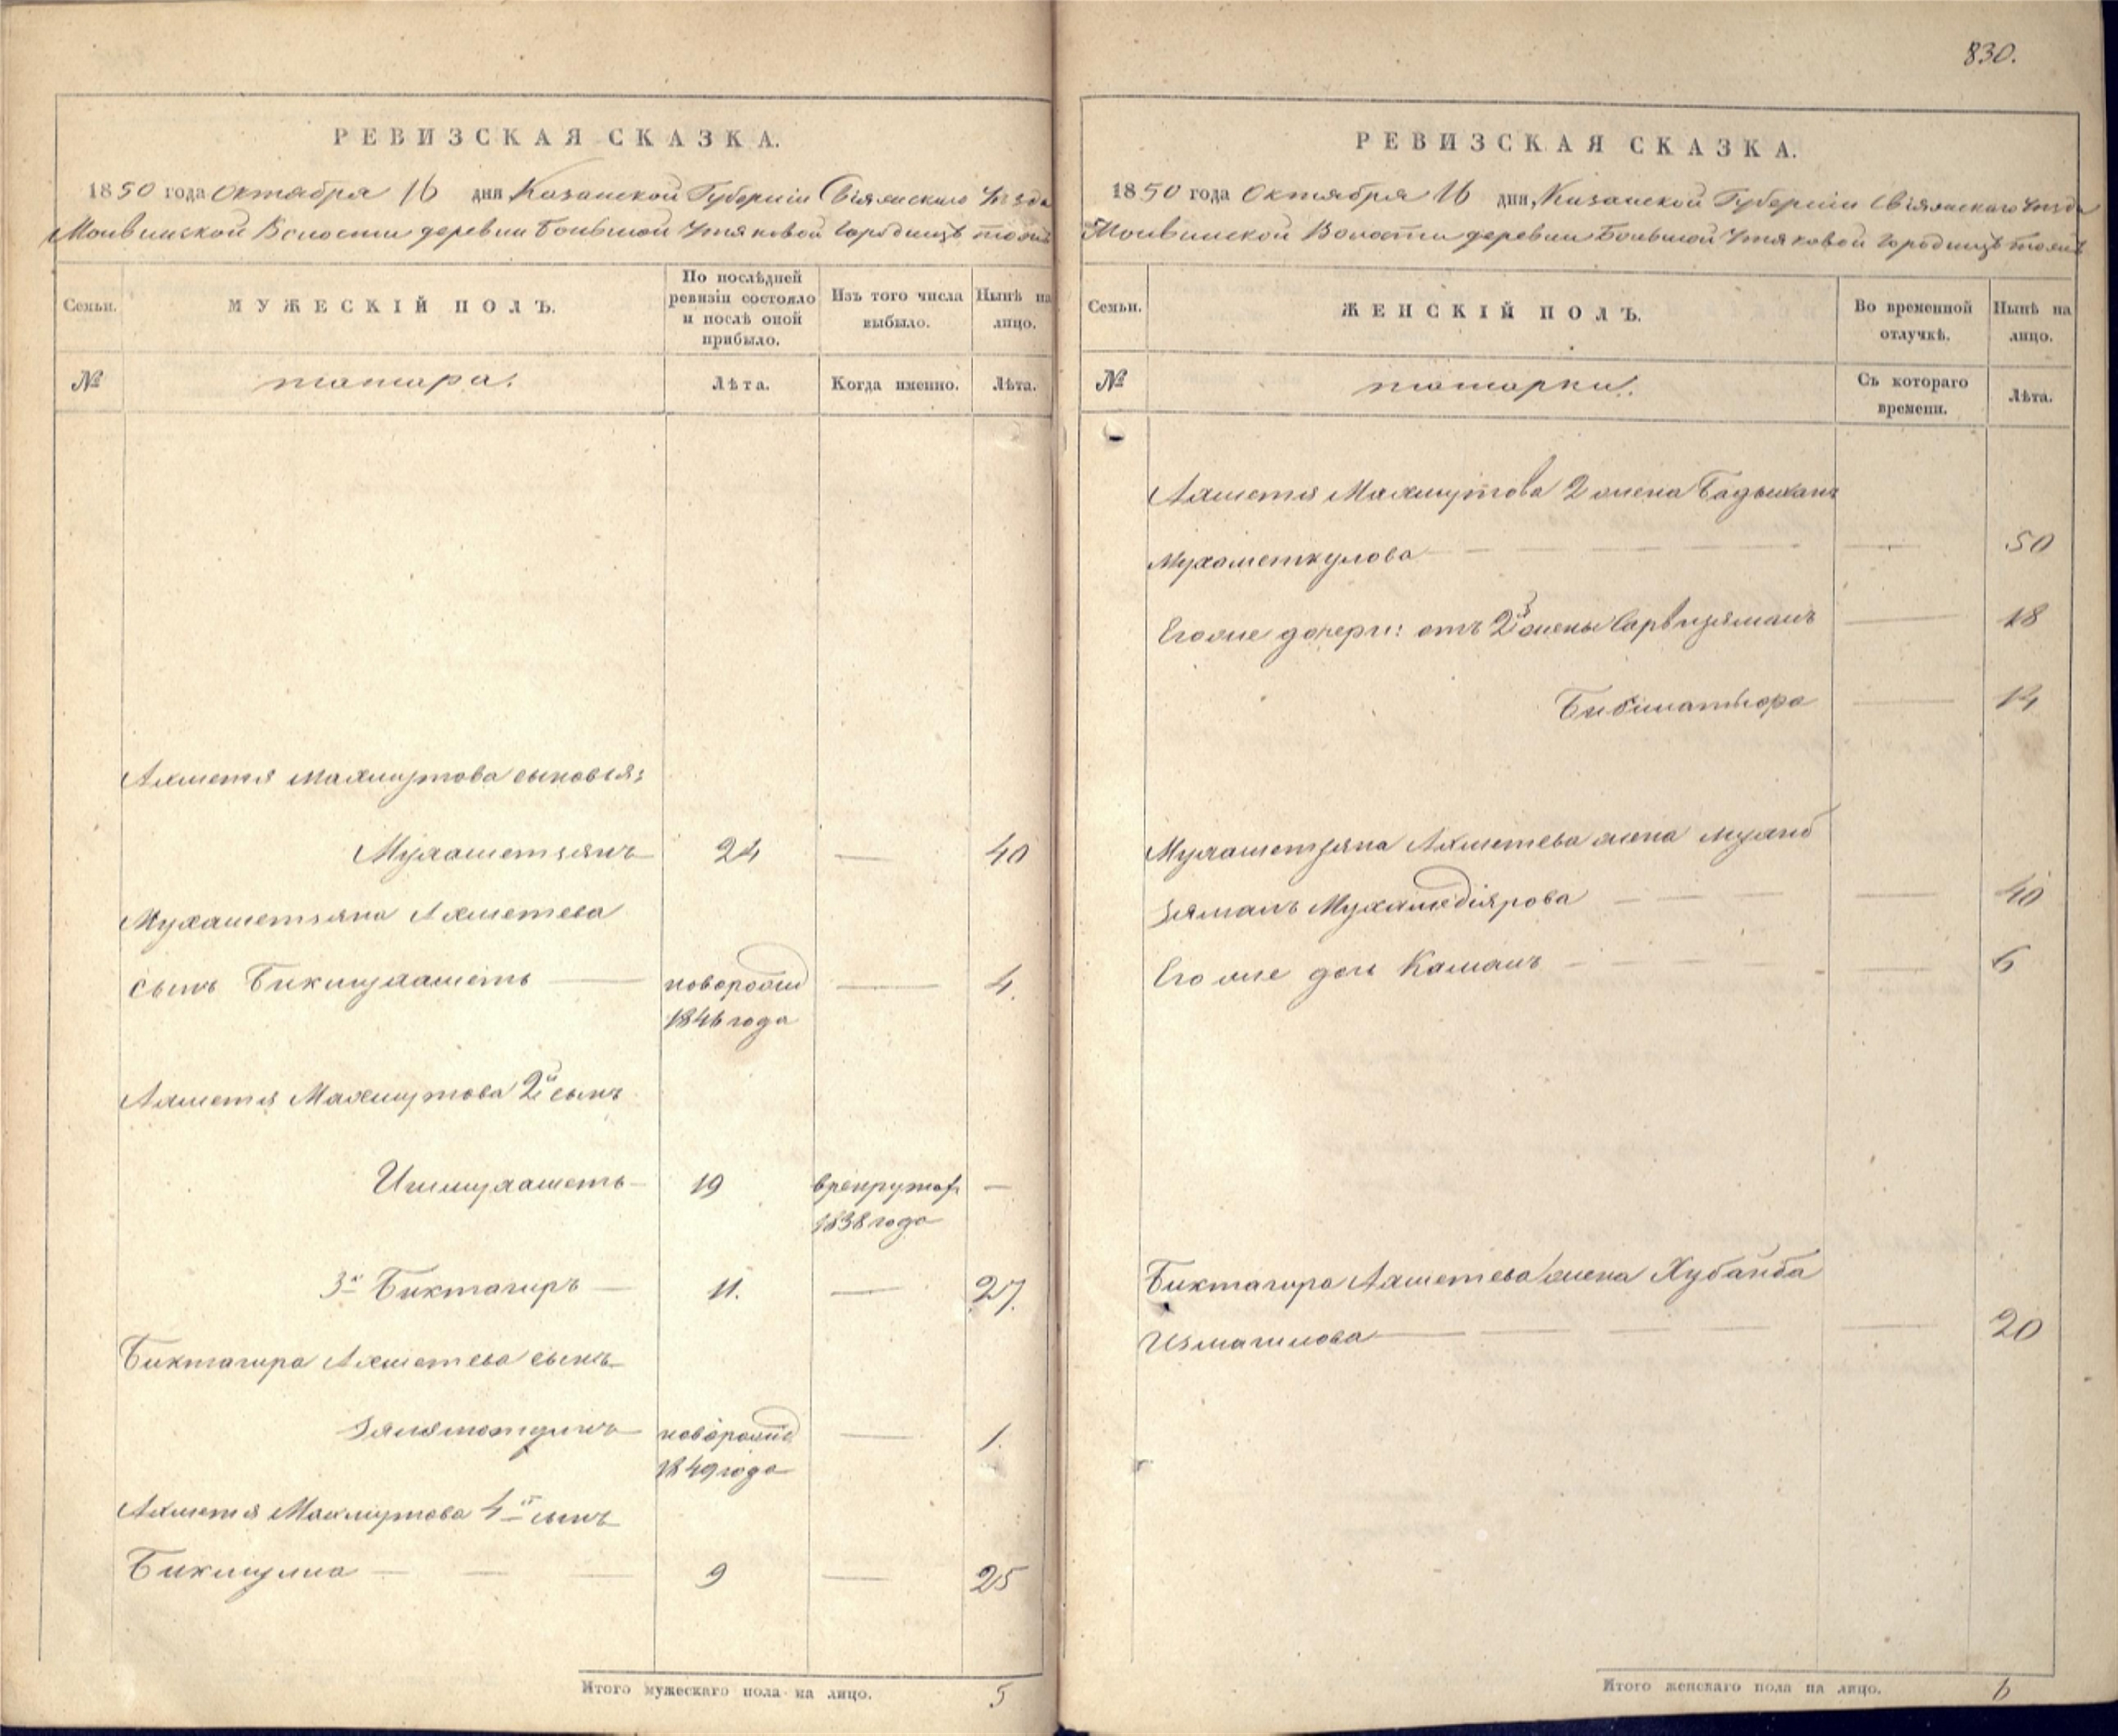 РЕВИЗСКАЯ СКАЗКА.
1850 года Октября 16 дня Казанской Губерніи Свіяжскаго Уѣзда
Волости деревни Большой Утяковой Городище тожъ
Семьи.
МУЖЕСКІЙ ПОЛЪ.
По послѣдней
ревизіи состояло
и послѣ оной
прибыло.
Изъ того числа
выбыло.
Нынѣ на
лицо.
№
татара.
Лѣта.
Когда именно.
Лѣта.
Ахметя Махмутова сыновья:
Мухаметзянъ 24 40
Мухаметзяна Ахметева
сынъ Бикмухаметь новорожд 4.
1846 года
Ахметя Махмутова 2й сынъ
Ишмухаметь 19 врекруты —
1838 года
3й Биктагиръ 11. 27.
Биктагира Ахметева сынъ
Зялялютдинъ новорожд 1.
1849 года
Ахметя Махмутова 4й сынъ
Бикмулла 9 25
Итого мужескаго пола на лицо. 5
830.
РЕВИЗСКАЯ СКАЗКА.
1850 года Октября 16 дня, Казанской Губерніи Свіяжскаго Уѣзда
Волости деревни Большой Утяковой Городище тожъ
Семьи.
ЖЕНСКІЙ ПОЛЪ.
Во временной
отлучкѣ.
Нынѣ на
лицо.
№
татарки.
Съ котораго
времени.
Лѣта.
Ахметя Махмутова 2 жена
Мухаметкулова 50
Его же дочери: отъ 2й жены Сарвизяманъ 18
14
Мухаметзяна Ахметева жена
зяманъ Мухамедіярова 40
Его же дочь Каманъ 6
Биктагира Ахметева жена Хубанба
Измагилова 20
Итого женскаго пола на лицо. 6